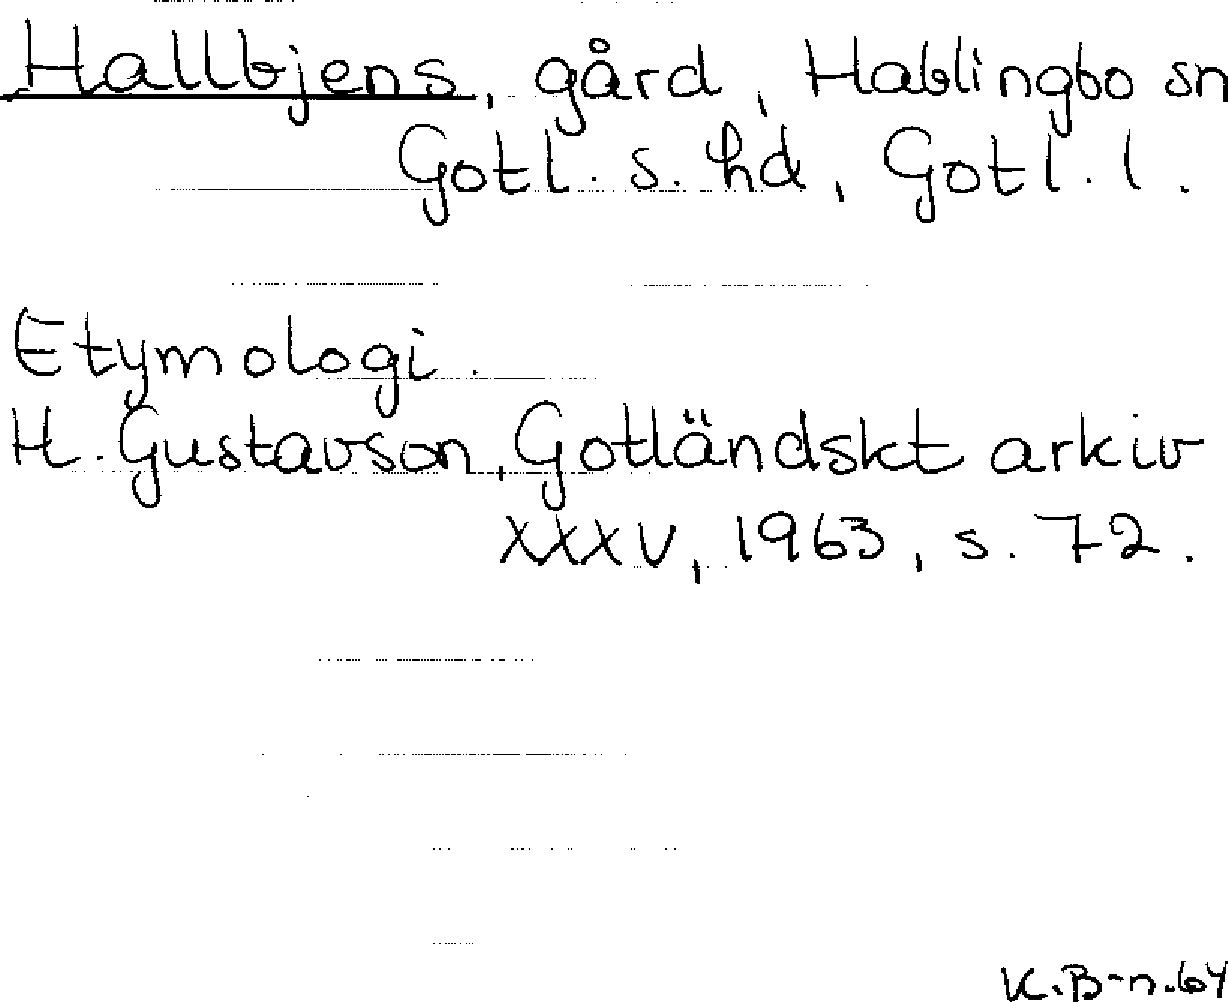 Hallbjens, gård, Hablingbo sn
Gotl. s. hd, Gotl. l.
Etymologi.
H. Gustavson, Gotländskt arkiv
XXXV, 1963, s. 72.
K.B-n.64